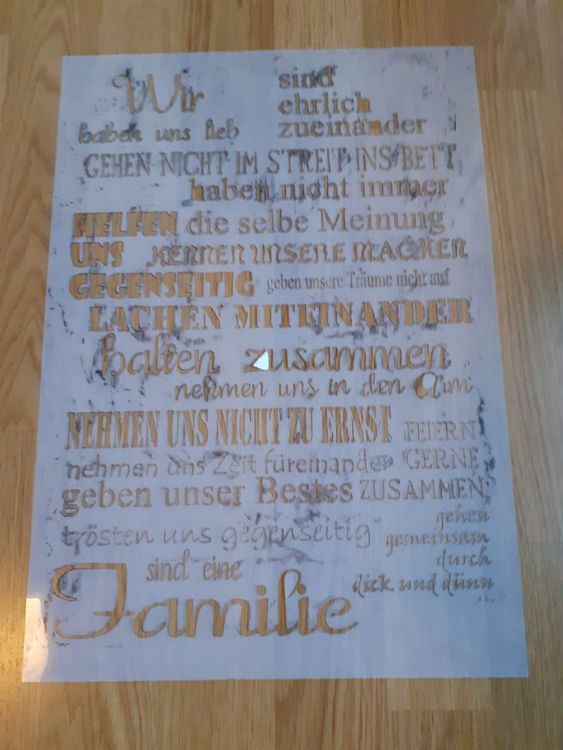 Wir
sind
ehrlich
haben uns lieb
zueinander
GEHEN NICHT IM STREIT INS BETT
haben nicht immer
HELFEN die selbe Meinung
UNS KENNEN UNSERE MACKEN
GEGENSEITIG geben unsere Träume nicht auf
LACHEN MITEINANDER
halten zusammen
nehmen uns in den Arm
NEHMEN UNS NICHT ZU ERNST FEIERN
nehmen uns Zeit füreinander GERNE
geben unser Bestes ZUSAMMEN
gehen
trösten uns gegenseitig gemeinsam
durch
sind eine dick und dünn
Familie